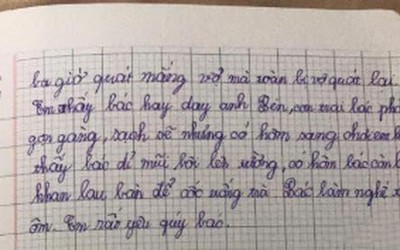 ba giờ quát mắng vợ mà toàn bị vợ quát lại
Em thấy bác hay dạy anh Bền, con trai bác phả
gọn gàng, sạch sẽ nhưng có hôm sang chơi em
thấy bác dỉ mũi bôi lên tường, có hôm bác còn
khăn lau bàn để cốc uống mà Bác làm nghề
ôm. Em rất yêu quý bác.